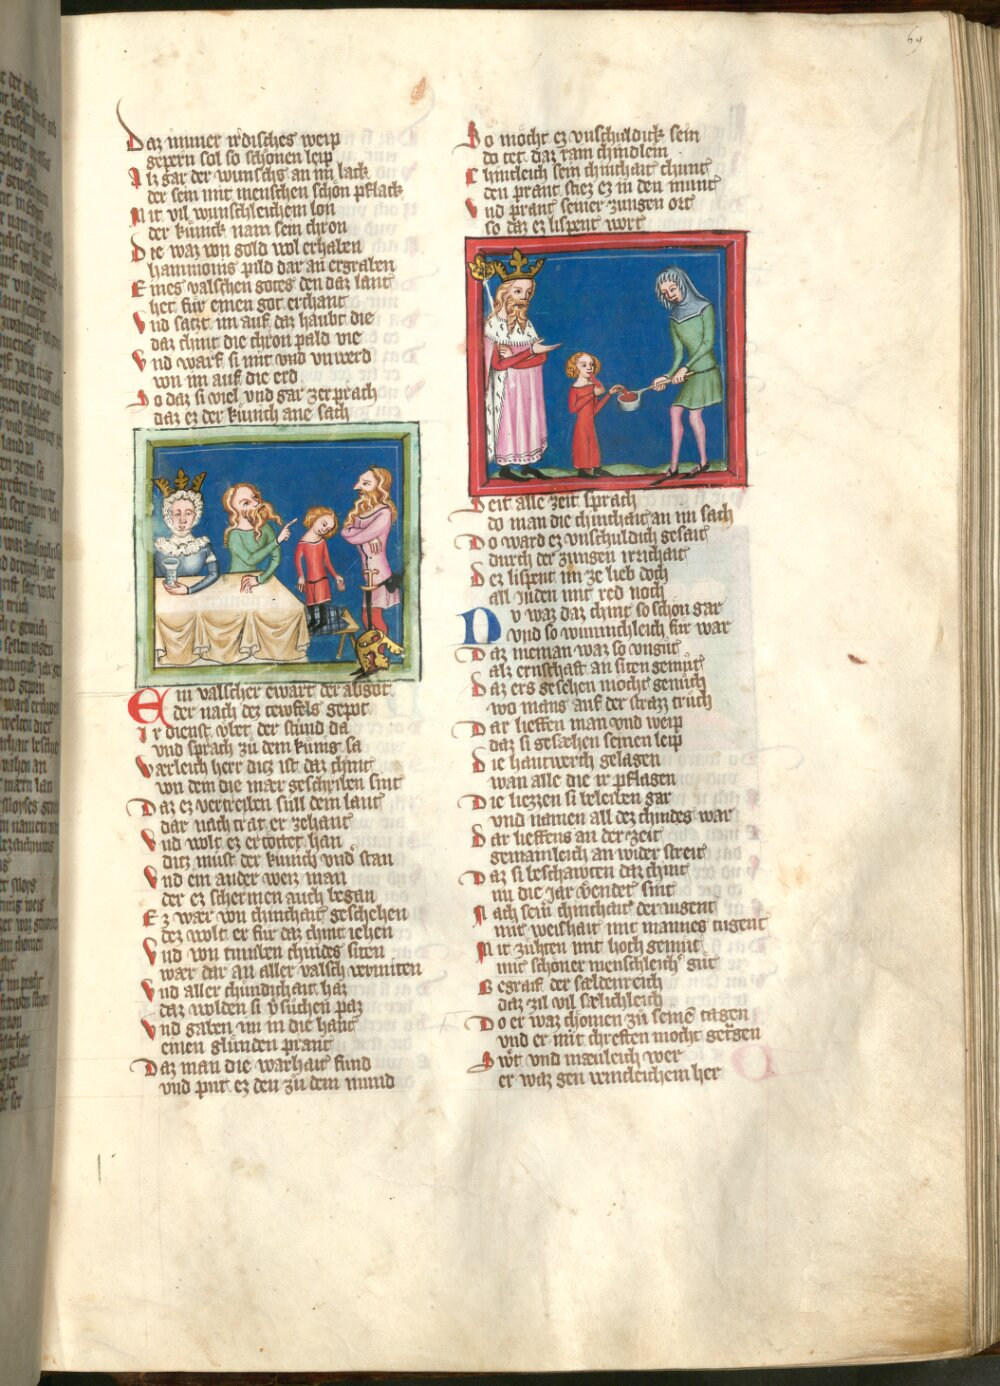 64
Daz ummer irdisches weip
gepern sol so schonen leip
Alz gar der wunschs an im lack
der sein mit menschen schon pflack
Mit vil wunschleichem lon
der kunick nam sein chron
Die waz von gold wol erhaben
hammonis pild dar an ergraben
Eines valschen gotes den daz lant
het fur einen got erchant
Und satzt im auf daz haubt die
daz chint die chron pald vie
Und warf si mit und unwerd
von im auf die erd
So daz si viel und gar zerprach
daz ez der kunich ane sach
Ein valscher ewart der abgot
der nach dez tewfels gepot
Ir dienst uber der stund da
und sprach zu dem kunig sa
Waerleich herr ditz ist daz chint
von dem die maer geschriben sint
Daz ez vertreiben sull dem lant
dar nach trat er zehant
Und wolt ez ertotet han
ditz must der kunich und stan
Und ein ander weiz man
der ez schermen auch began
Ez waer von chinchait geschehen
dez wolt er fur daz chint iehen
Und von tumben chindes siten
waer dar an aller valsch vermiten
Und aller chundichait haz
daz wolden si vsuchen paz
Und gaben im in die hant
einen glunden prant
Daz man die warhait fund
und put ez den zu dem mund
So mocht ez unschuldick sein
do tet daz rain chindlein
Chintleich sein chinchait chunt
den prant stiez ez in den munt
Und prant seiner zungen ort
so daz ez lispent wort
Seit alle zeit sprach
do man die chinchait an im sach
Do ward ez unschuldich gesait
durch der zungen irrichait
Dez lispent im ze lieb doch
all iuden mit red noch
Nu waz daz chint so schon gar
und so wunnchleich fur war
Daz nieman waz so ungut
alz ernsthaft an siten gemut
Daz ers gesehen mocht genuch
wo mans auf der strazz truch
Dar lieffen man und weip
daz si gesaehen seinen leip
Die hantwerch gelagen
wan alle die ir pflagen
Die liezzen si beleiben gar
und namen all dez chindes war
Dar lieffens an der zeit
gemainleich an wider streit
Daz si beschawten daz chint
nu die iar wendet sint
Nach sein chinchait der iugent
mit weishait mit mannes tugent
Mit zuhten mit hoch gemut
mit schoner menschleich gut
Begraif der saeldenreich
daz zil vil saelichleich
Do er waz chomen zu seinen tagen
und er mit chreften mocht getragen
Swert und maenleich wer
er waz gen veintleichem her